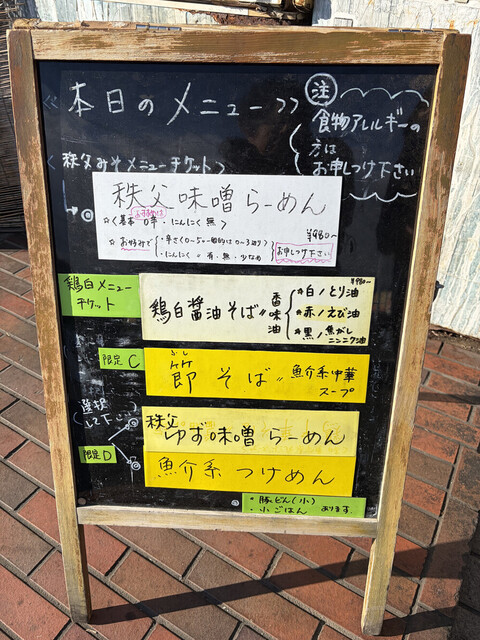 《本日のメニュー》
注
食物アレルギーの
方は
お申しつけ下さい
〈秩父みそメニューチケット〉
秩父味噌らーめん
おすすめは
☆〈基本 0辛・にんにく 無〉
¥980〜
☆お好みで
・辛さ(0〜5 一般的は0〜3辺り)
・にんにく = 有・無・少なめ
お申しつけ下さい
鶏白メニュー
チケット
鶏白醤油そば〃
香味油
¥980ー
☆白/とり油
☆赤/えび油
☆黒/焦がし
ニンニク油
限定 C
ぶし
節そば〃
魚介系中華
スープ
選択
(して下さい)
秩父
ゆず味噌らーめん
限定 D
魚介系つけめん
・豚どん(小)
・小ごはん
あります